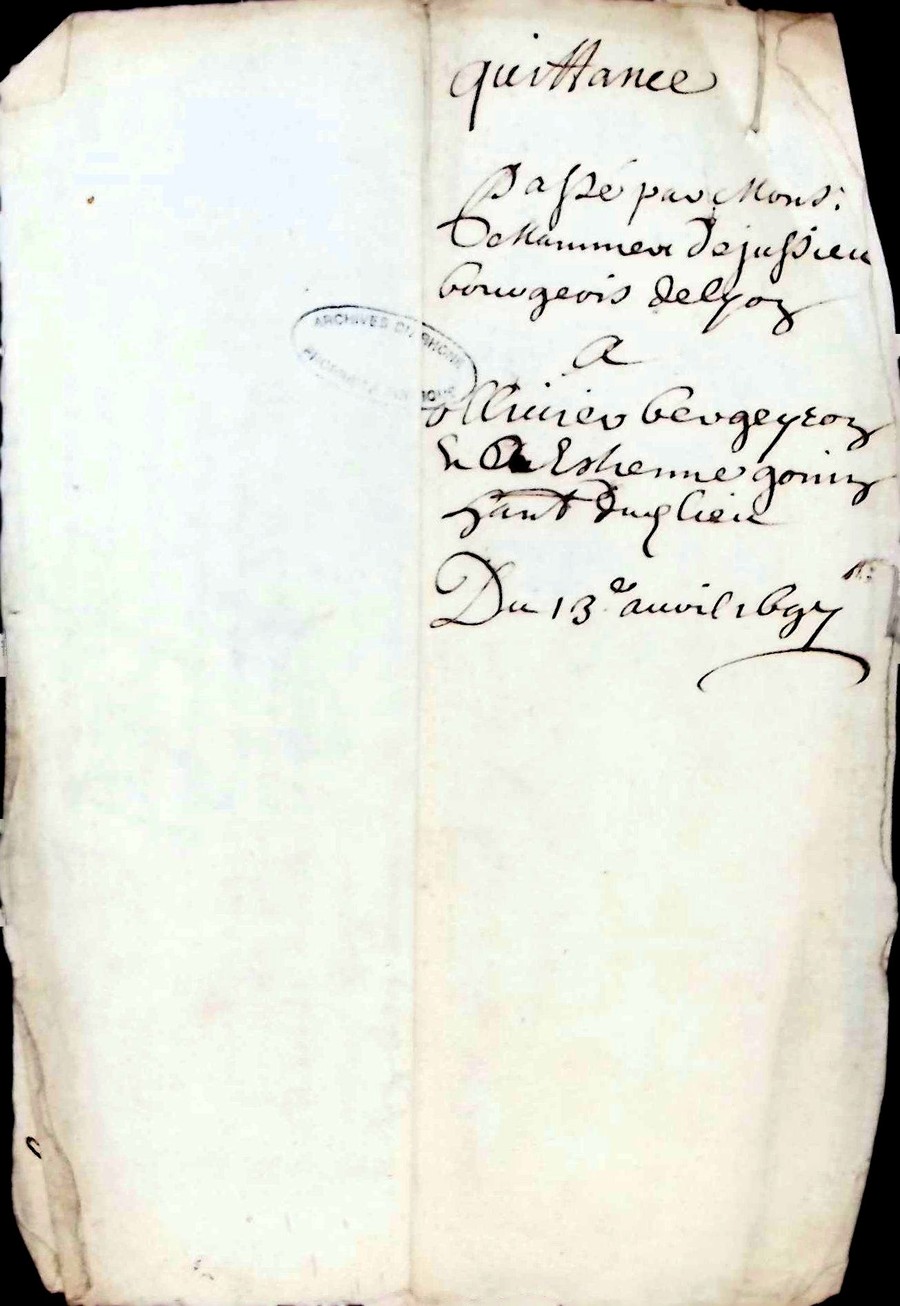 quittance
Passé par Mons:
De Mammer Dejussieu
bourgeois delyon
A
ollivier bergeyron
& Estienne gonin
hant dud lieu
Du 13e auril 1697
ARCHIVES DU RHONE